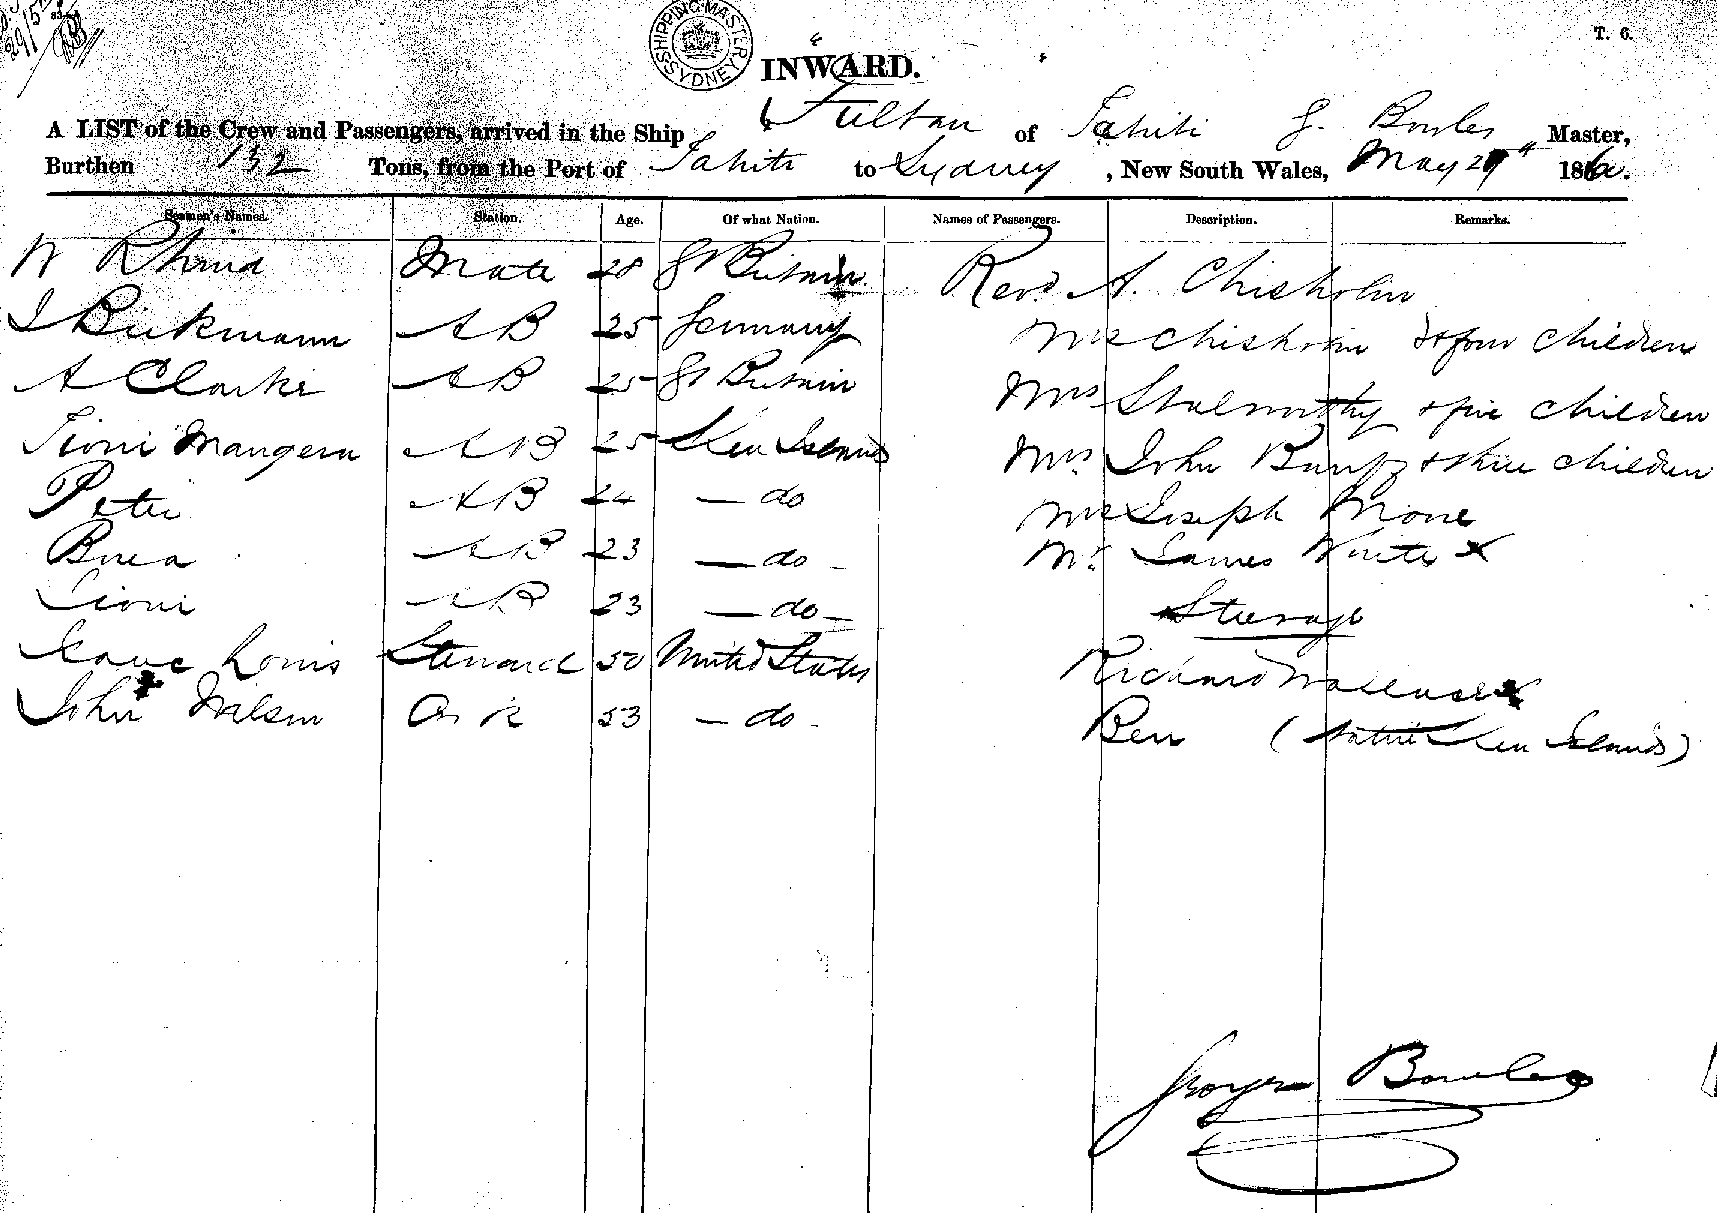 SHIPPING MASTER SYDNEY
T. 6.
INWARD.
A LIST of the Crew and Passengers, arrived in the Ship Fulton of Tahiti G. Bowles Master,
Burthen 132 Tons, from the Port of Tahiti to Sydney, New South Wales, May 29th 186
Seamen's Names. Station. Age. Of what Nation. Names of Passengers. Description. Remarks.
W Mate 28 Gt Britain Revd. A. Chisholm
AB 25 Germany Mrs Chisholm & four children
A Clarke AB 25 Gt Britain Mrs Stalworthy & five children
Tioni AB 25 Sea Islands Mrs. John & three children
Peter AB 24 — do Joseph
AB 23 — do — Mr. James White x
Tioni AB 23 — do — Steerage
Isaac Louis Steward 50 United States Richard Wallace x
John Wilson 53 — do — Ben (Native Sea Islands)
George Bowles